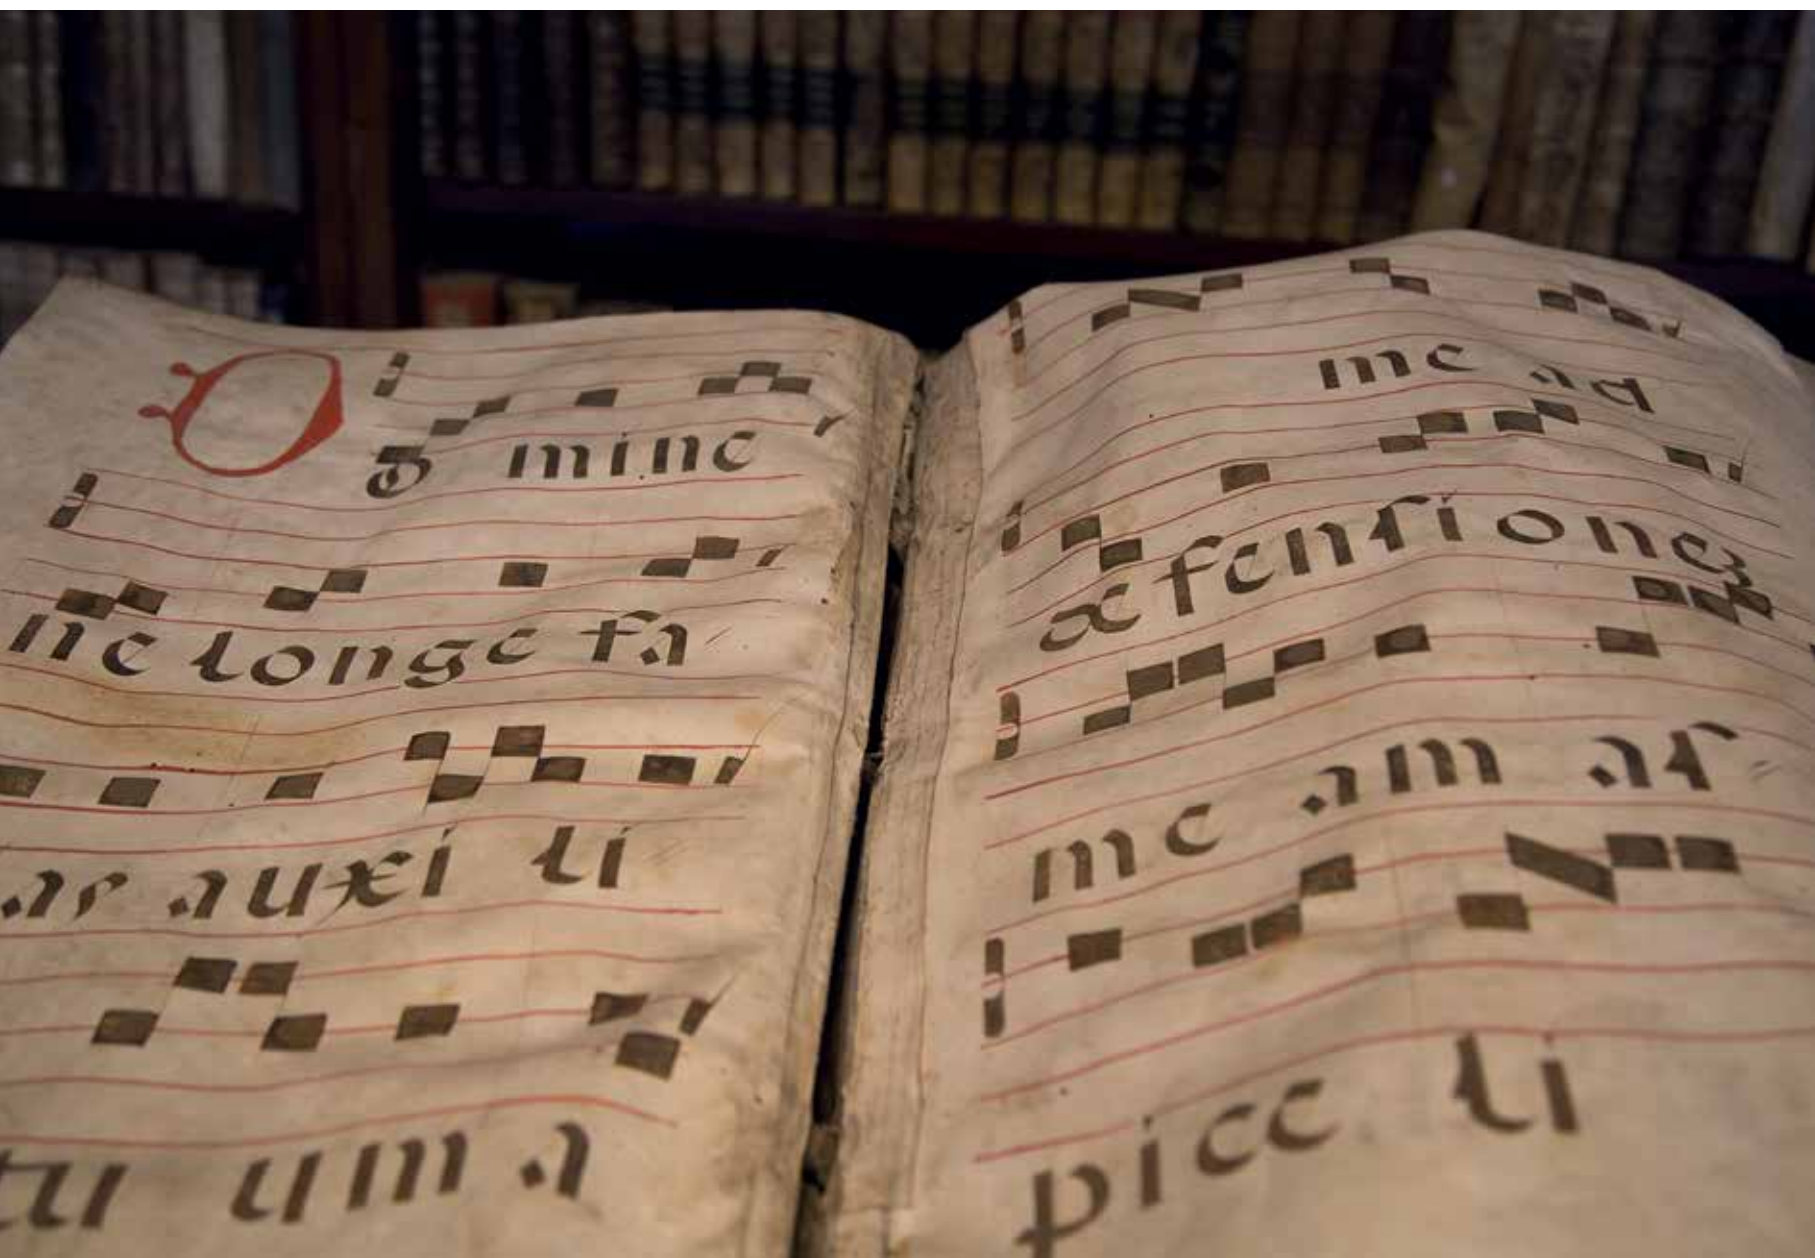 Do mine
ne longe fa
as auxi li
tu um a
me ad
defensionez
me am as
pice li